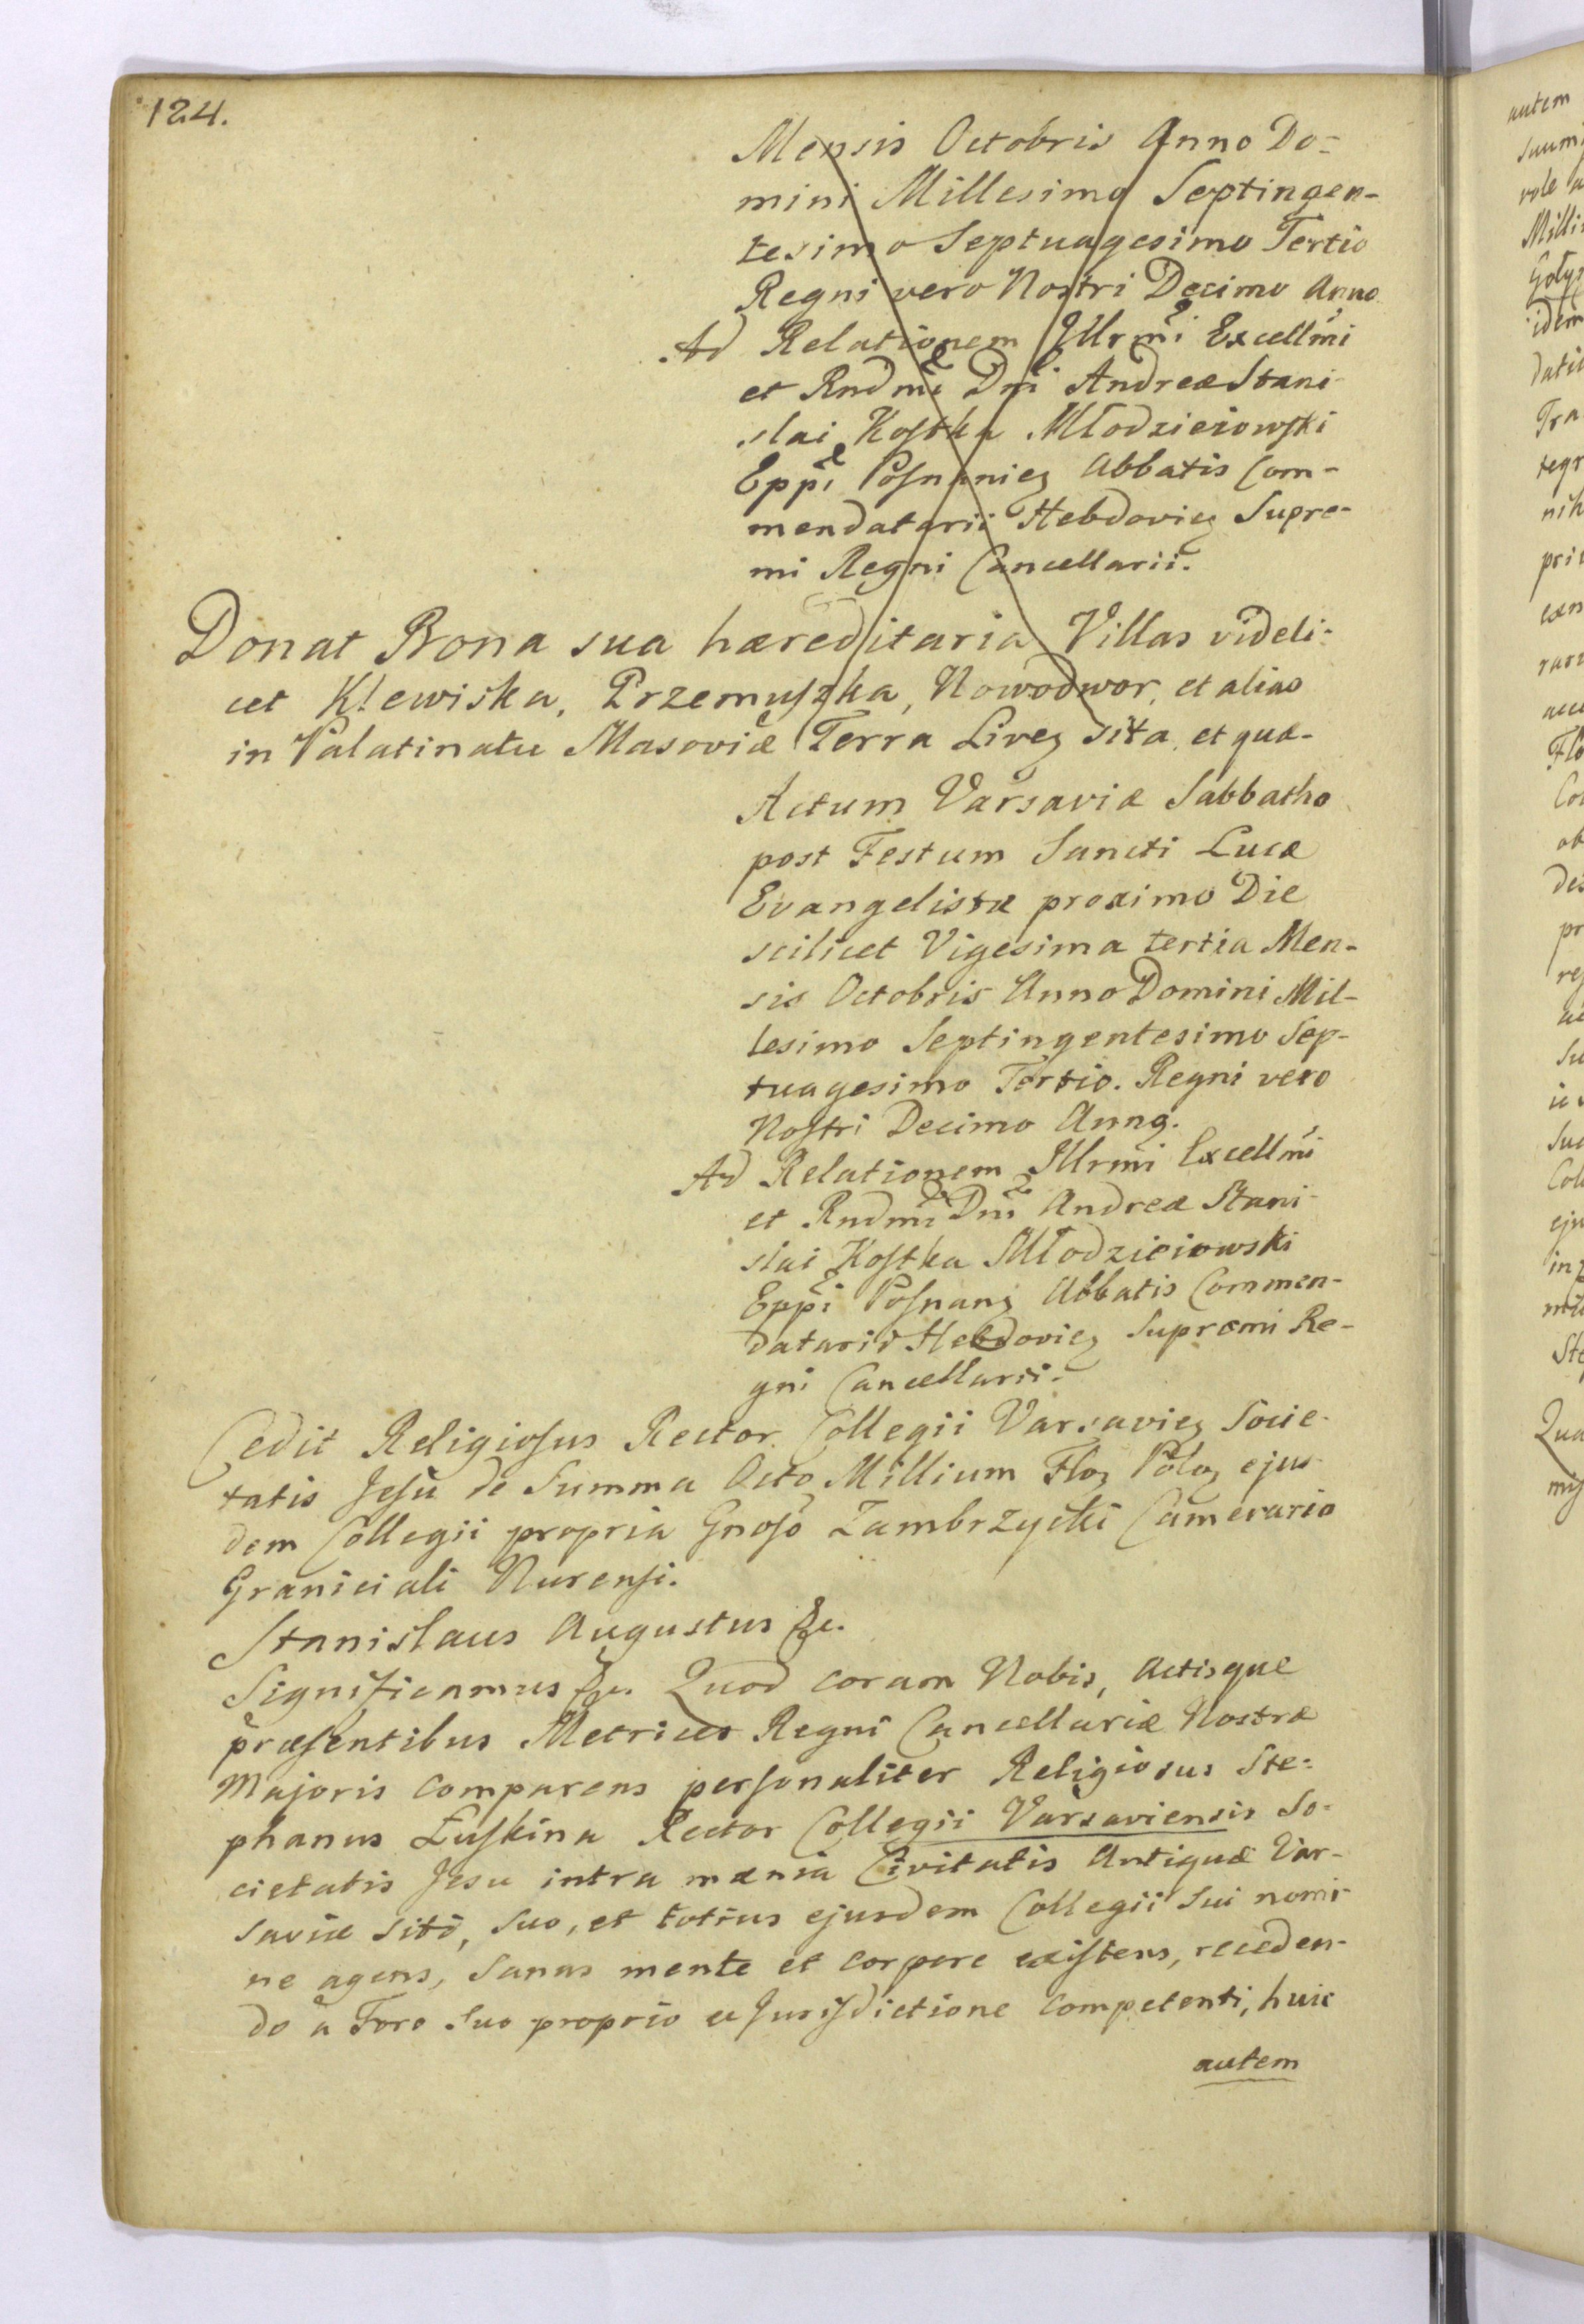 124.
Mensis Octobris Anno Do=
mini Millesimo Septingen-
tesimo Septuagesimo Tertio
Regni vero Nostri Decimo Anno
Ad Relationem Illrmi Excellmi
et Rndmi Dni Andreæ Stani
slai Kostka Młodzieiowski
Eppi Posnanieȝ Abbatis Com-
mendatarii Hebdovieȝ Supre-
mi Regni Cancellarii.
Donat Bona sua hæreditaria Villas videli=
cet Klewiska, Przemuszka, Nowodwor, et alias
in Palatinatu Masoviæ Terra Liveȝ sita, et quæ-
Actum Varsaviæ Sabbatho
post Festum Sancti Lucæ
Evangelistæ proximo Die
scilicet Vigesima tertia Men-
sis Octobris Anno Domini Mil-
lesimo Septingentesimo Sep-
tuagesimo Tertio. Regni vero
Nostri Decimo Anno.
Ad Relationem Illrmi Excellmi
et Rndmi Dni Andreæ Stani-
slai Kostka Młodzieiowski
Eppi Posnanȝ Abbatis Commen-
datarii Hebdovieȝ Supremi Re-
gni Cancellarii.
Cedit Religiosus Rector Collegii Varsavieȝ Socie-
tatis Jesu de Summa Octo Millium Floȝ Poloȝ ejus-
dem Collegii propria Gnoso Zambrzycki Camerario
Graniciali Nurensi.
Stanislaus Augustus &c.
Significamus &c. Quod coram Nobis, Actisque
præsentibus Metrices Regni Cancellariæ Nostræ
Majoris comparens personaliter Religiosus Ste=
phanus Łuskina Rector Collegii Varsaviensis So=
cietatis Jesu intra mænia Civitatis Antiquæ Var-
saviæ siti, suo, et totius ejusdem Collegii sui nomi-
ne agens, Sanus mente et corpore existens, receden-
do à Foro suo proprio et Jurisdictione competenti, huic
autem